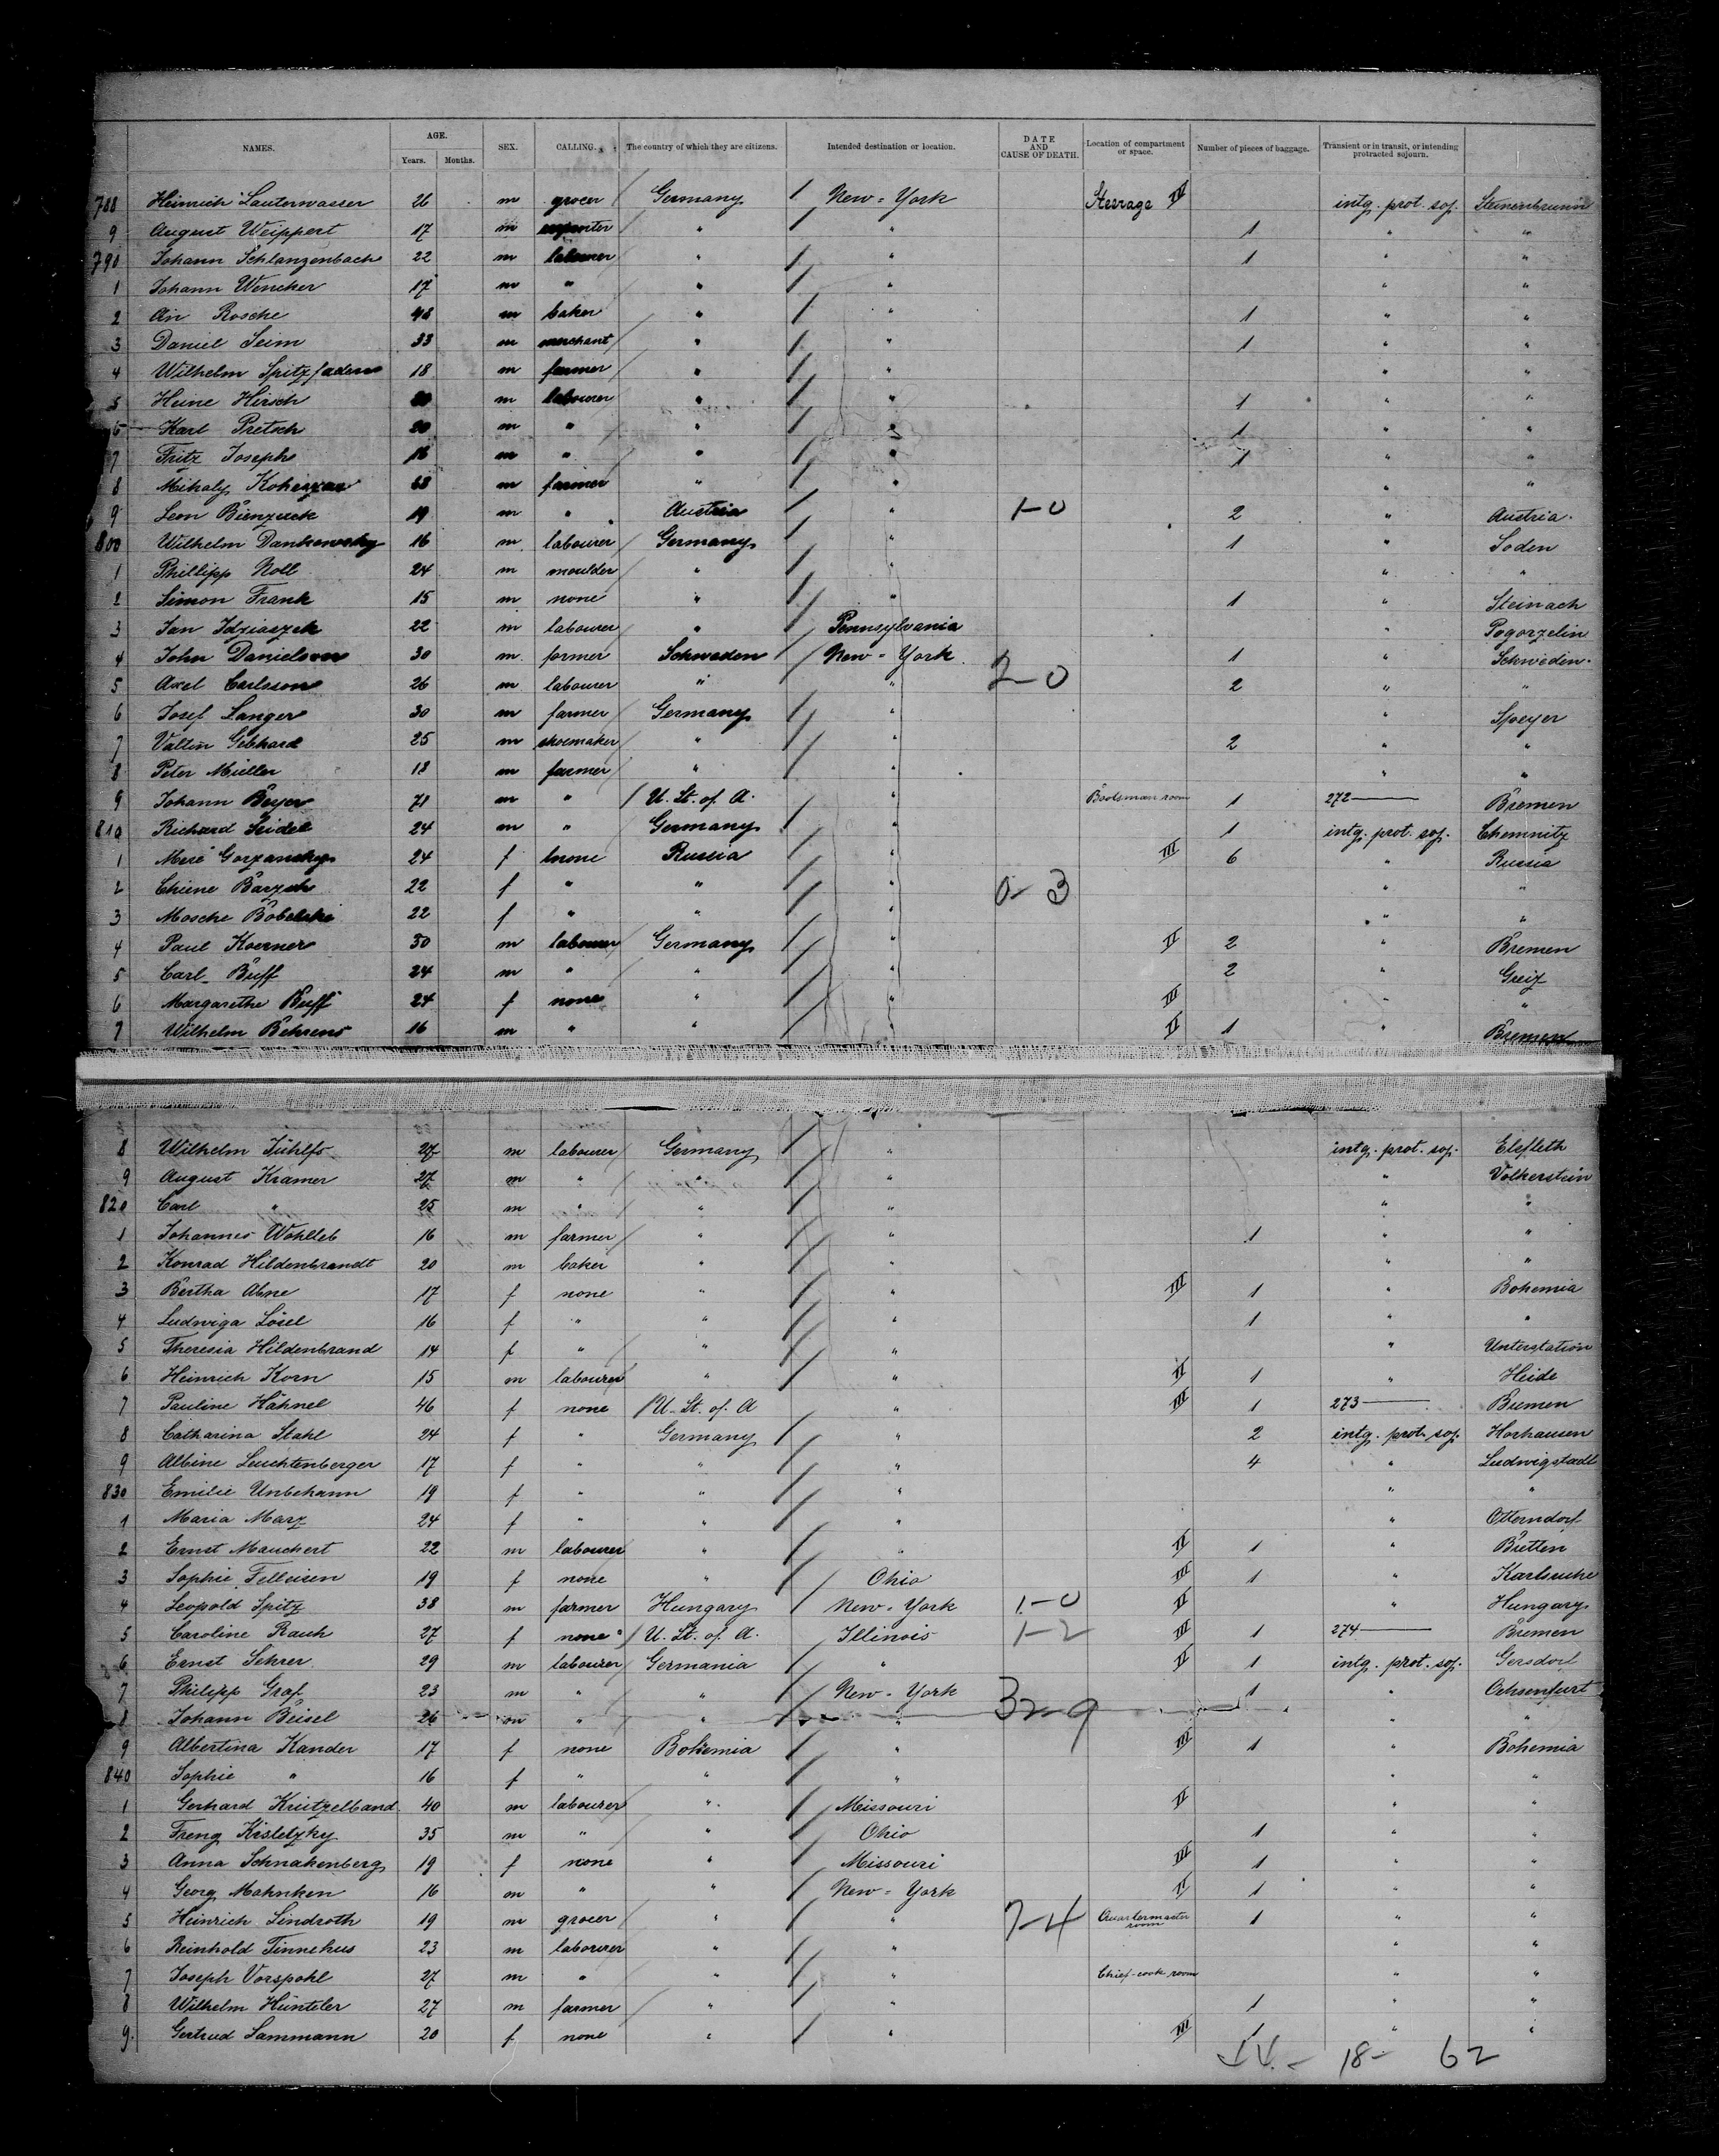 NAMES. AGE. Years. Months. SEX. CALLING. The country of which they are citizens. Intended destination or location. DATE AND CAUSE OF DEATH. Location of compartment or space. Number of pieces of baggage. Transient or in transit, or intending protracted sojourn.
788 Heinrich Lauterwasser 26 m grocer Germany New-York Steerage IV intg. prot. soj. Steinenbrunn
9 August Weippert 17 m " " 1 " "
790 Johann Schlangenbach 22 m labourer " " 1 " "
1 Johann Wencker 17 m " " " " "
2 Rosche m baker " " 1 " "
3 Daniel Seim 33 m merchant " " 1 " "
4 Wilhelm Spitzfaden 18 m farmer " " " "
5 Heine Hirsch m labourer " " 1 " "
6 Karl Pretsch 20 m " " " 1 " "
7 Fritz Joseph 16 m " " " 1 " "
8 Mihaly m farmer " " " "
9 Leon Bienzeck 19 m " Austria " 1-0 2 " Austria.
800 Wilhelm Dankowsky 16 m labourer Germany " 1 " Soden
1 Phillipp Noll 24 m moulder " " " "
2 Simon Frank 15 m none " " 1 " Steinach
3 Jan Idziaszek 22 m labourer " Pennsylvania " Pogorzelin
4 John Danielson 30 m farmer Schweden New-York 2-0 1 " Schweden.
5 Axel Carlsson 26 m labourer " " 2 " "
6 Josef Langer 30 m farmer Germany " " Speyer
7 Valtin Gebhard 25 m shoemaker " " 2 " "
8 Peter Müller 18 m farmer " " " "
9 Johann Beyer 71 m " U. St. of A. " Bootsman room 1 272 Bremen
810 Richard Seidel 24 m " Germany " 1 intg. prot. soj. Chemnitz
1 Mere Gorzansky 24 f none Russia " III 6 " Russia
2 Chiene Barzch 22 f " " " 0-3 " "
3 Mosche Bobelski 22 f " " " " "
4 Paul Koerner 30 m labourer Germany " II 2 " Bremen
5 Carl Buff 24 m " " " 2 " Greiz
6 Margarethe Buff 24 f none " " III " "
7 Wilhelm Behrens 16 m " " " II 1 " Bremen
8 Wilhelm Jühlfs 27 m labourer Germany " intg. prot. soj. Elsfleth
9 August Kramer 27 m " " " " Volkerstein
820 Carl " 25 m " " " " "
1 Johannes Wohlleb 16 m farmer " " 1 " "
2 Konrad Hildenbrandt 20 m baker " " " "
3 Bertha Abne 17 f none " " III 1 " Bohemia
4 Ludwiga Lösel 16 f " " " 1 " "
5 Theresia Hildenbrand 14 f " " " " Unterstation
6 Heinrich Korn 15 m labourer " " II 1 " Heide
7 Pauline Hähnel 46 f none U. St. of A " III 1 273 Bremen
8 Catharina Stahl 24 f " Germany " 2 intg. prot. soj. Horhausen
9 Albine Leuchtenberger 17 f " " " 4 " Ludwigstadt
830 Emilie Unbehann 19 f " " " " "
1 Maria Marz 24 f " " " " Otterndorf
2 Ernst Mauchert 22 m labourer " " II 1 " Bretten
3 Sophie Felleisen 19 f none " Ohio III 1 " Karlsruhe
4 Leopold Spitz 38 m farmer Hungary New-York 1-0 II " Hungary
5 Caroline Rauh 27 f none U. St. of A. Illinois 1-2 III 1 274 Bremen
6 Ernst Sehrer 29 m labourer Germania " II 1 intg. prot. soj. Gersdorf
7 Philipp Graf 23 m " " New-York 32-9 1 " Ochsenfurt
8 Johann Beisel 26 m " " " " "
9 Albertina Kander 17 f none Bohemia " III 1 " Bohemia
840 Sophie " 16 f " " " " "
1 Gerhard Kreitzelband 40 m labourer " Missouri II " "
2 Kisletzky 35 m " " Ohio 1 " "
3 Anna Schnakenberg 19 f none " Missouri III 1 " "
4 Georg Mahnken 16 m " " New-York II 1 " "
5 Heinrich Lindroth 19 m grocer " " 7-4 Quartermaster room 1 " "
6 Reinhold Tinnehus 23 m labourer " " " "
7 Joseph Vorspohl 27 m " " " Chief-cook room " "
8 Wilhelm Hünteler 27 m farmer " " 1 " "
9. Gertrud Sammann 20 f none " " III 1 " "
18- 62